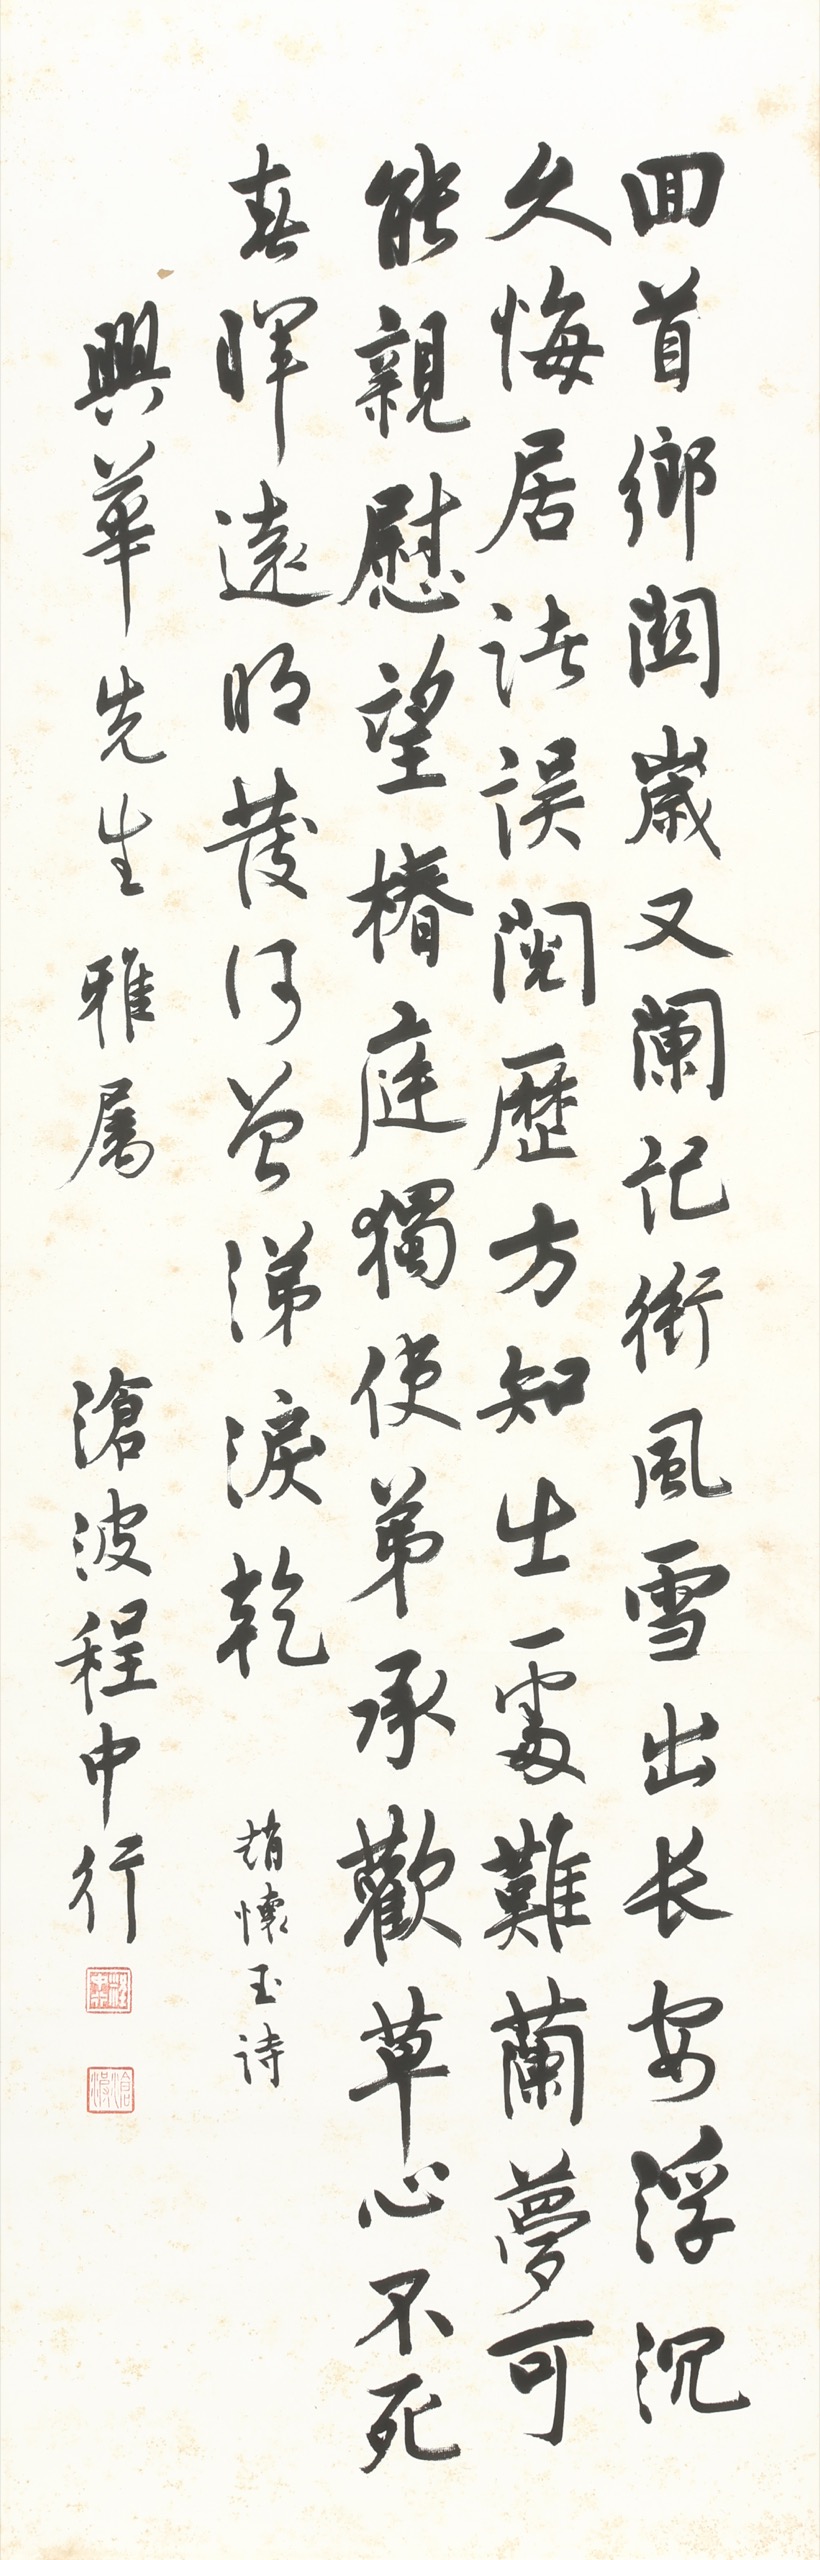 回首鄉關歲又闌記衝風雪出長安浮沉
久悔居諸誤閱歷方知出處難蘭夢可
能親慰望椿庭獨使弟承歡草心不死
春暉遠明發何曾涕淚乾 趙懷玉詩
興華先生雅屬 滄波程中行
程中行
滄波